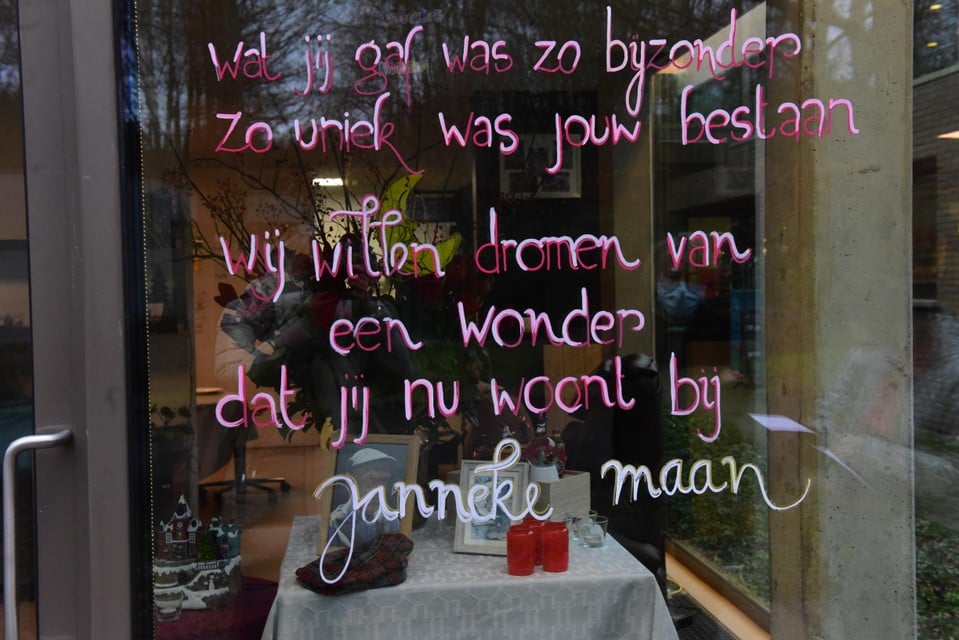 wat jij gaf was zo bijzonder
zo uniek was jouw bestaan
wij willen dromen van
een wonder
dat jij nu woont bij
janneke maan